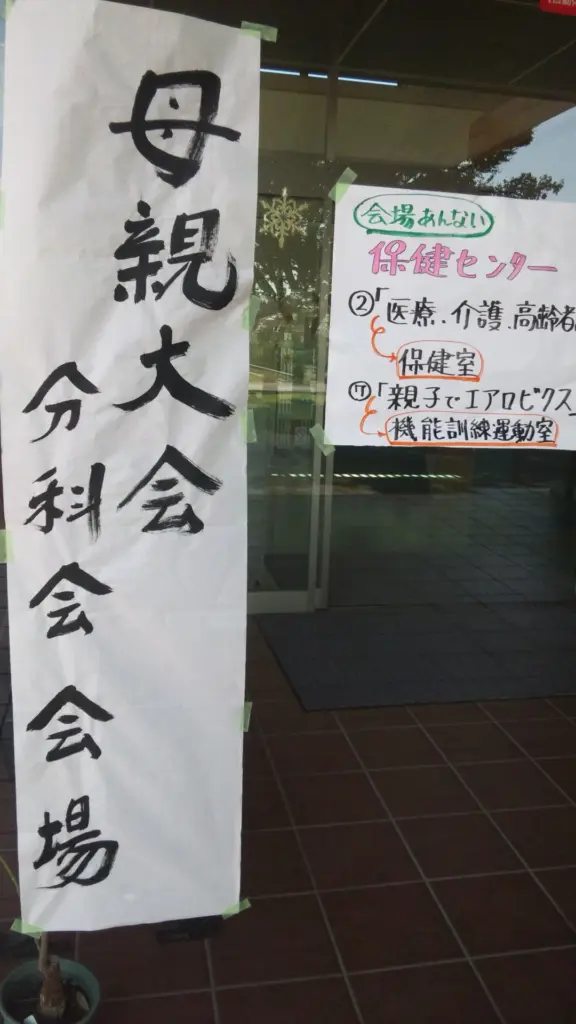 母親大会
分科会会場
会場あんない
保健センター
②「医療、介護、高齢者
保健室
⑰「親子でエアロビクス」
機能訓練運動室